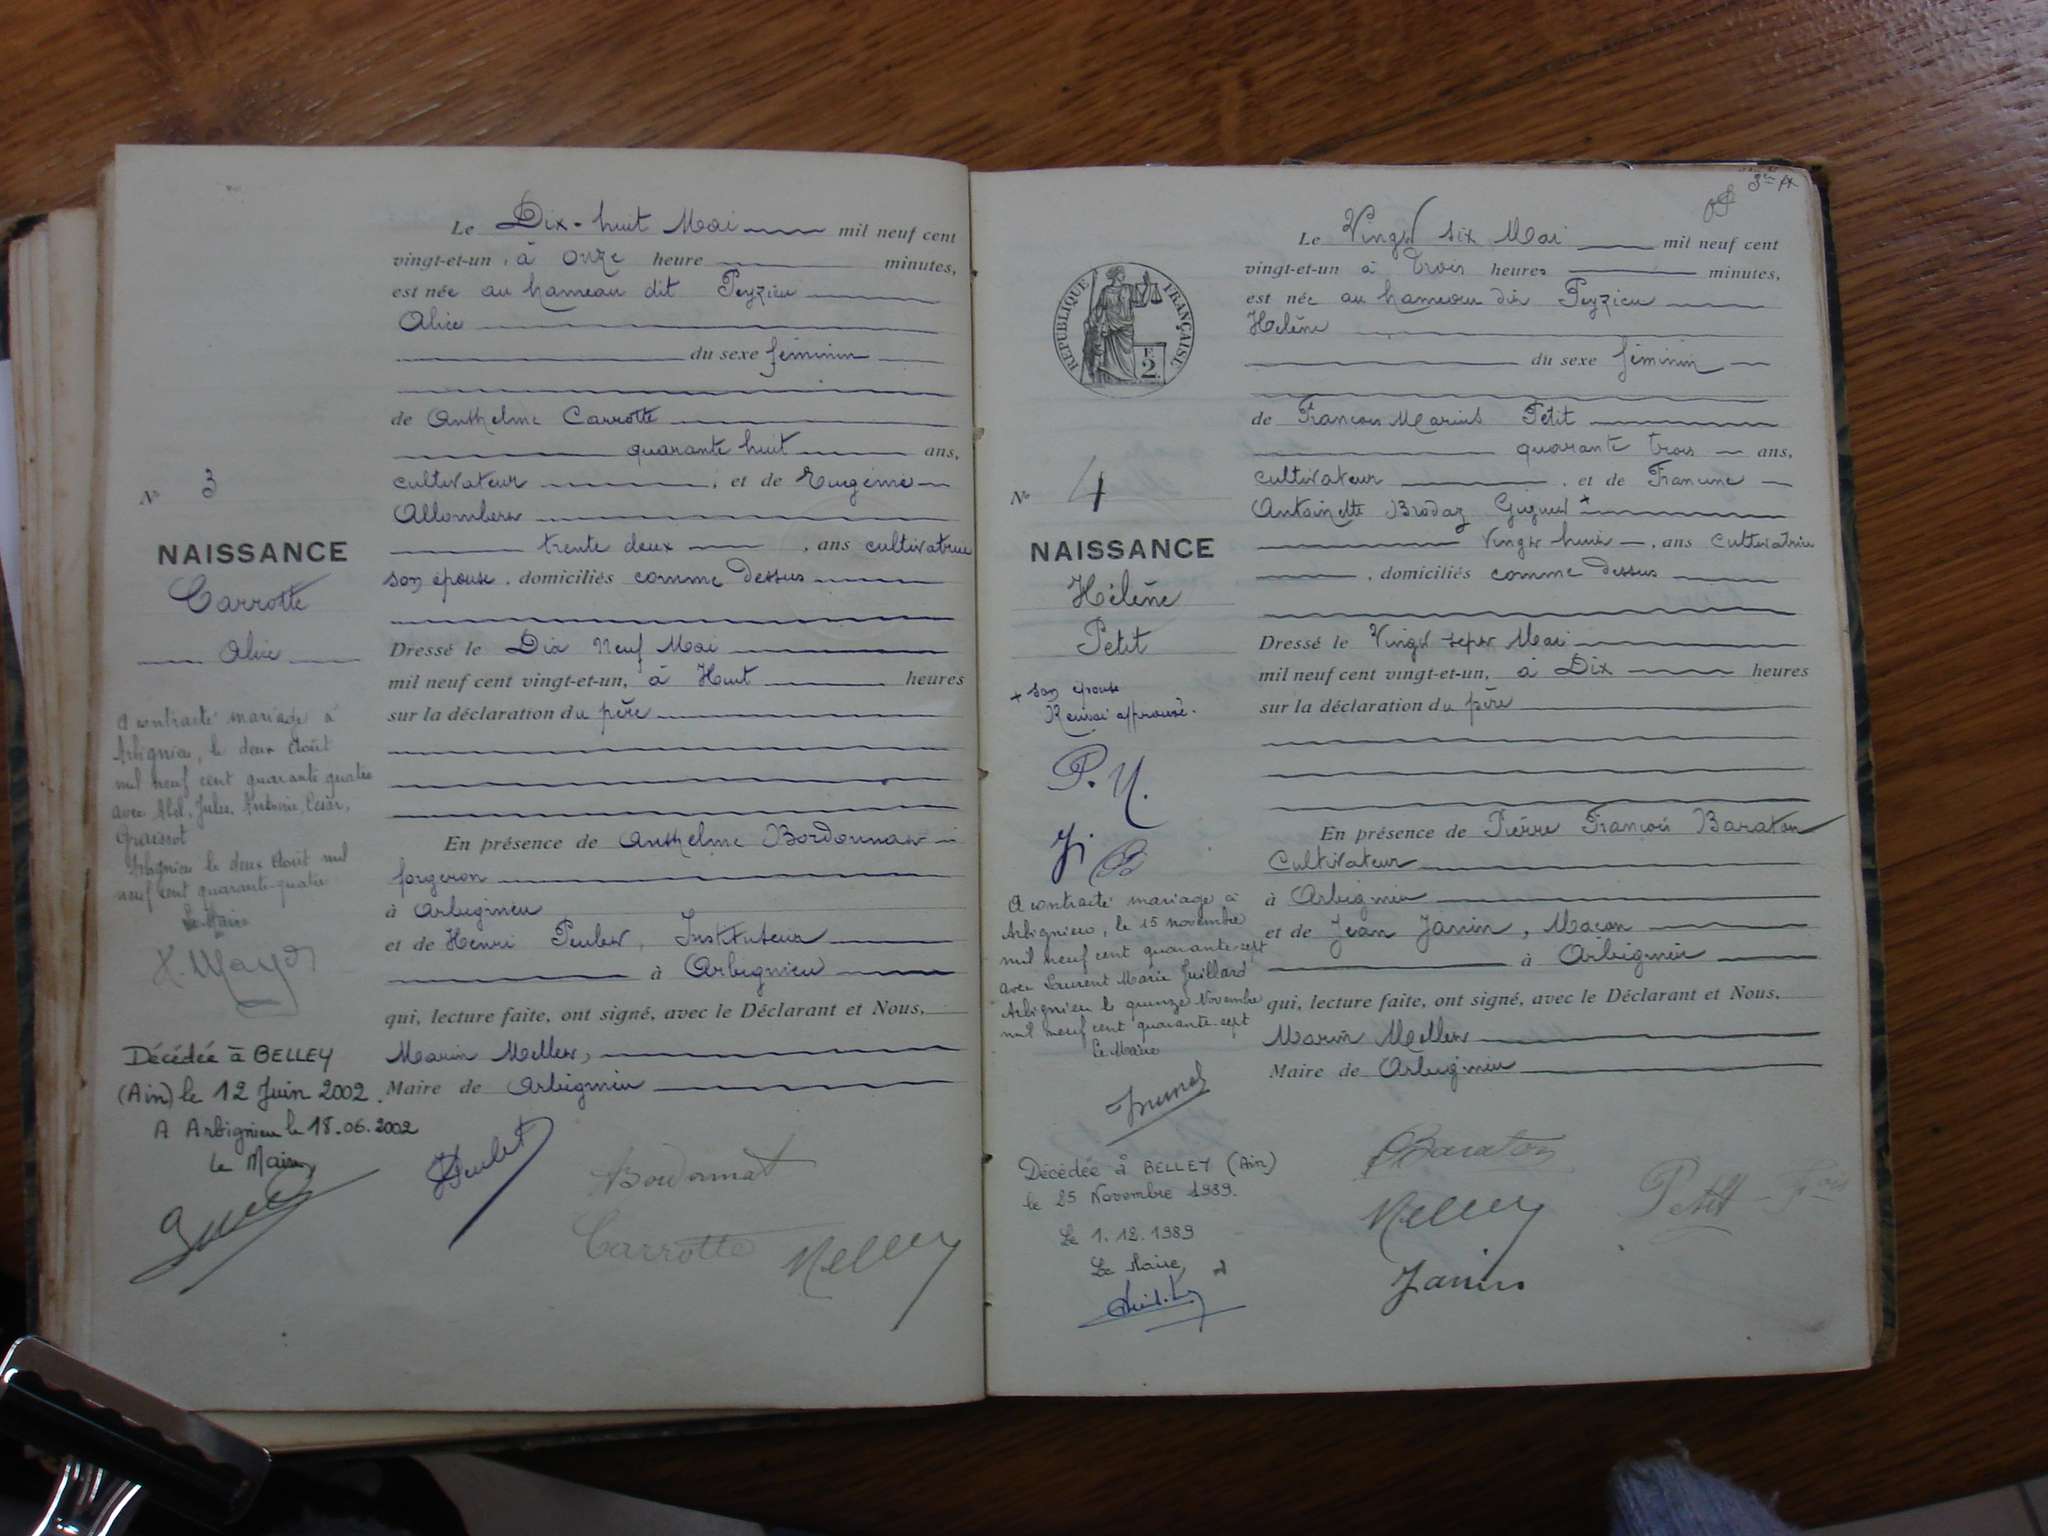 Le Dix-huit Mai mil neuf cent
vingt-et-un, à onze heure minutes,
est née au hameau dit Peyzieu
Alice
du sexe féminin
de Anthelme Carrotte
quarante huit ans,
cultivateur, et de Eugénie
Allombert
trente deux, ans cultivatrice
son épouse, domiciliés comme dessus
Dressé le Dix Neuf Mai
mil neuf cent vingt-et-un, à Huit heures
sur la déclaration du père
En présence de Anthelme Bordonnat
forgeron
à Arbignieu
et de Henri Peulet, Instituteur
à Arbignieu
qui, lecture faite, ont signé, avec le Déclarant et Nous,
Marin Melley,
Maire de Arbignieu
Peulet
Bordonnat
Carrotte
Melley
N° 3
NAISSANCE
Carrotte
Alice
A contracté mariage à
Arbignieu, le deux Août
mil neuf cent quarante quatre
avec Abel, Jules, Antoine, César,
Arbignieu le deux Août mil
neuf cent quarante-quatre
Le Maire
Décédée à BELLEY
(Ain) le 12 Juin 2002.
A Arbignieu le 18.06.2002
Le Maire
3
Le Vingt six Mai mil neuf cent
vingt-et-un à trois heures minutes,
est née au hameau dit Peyzieu
Helène
du sexe féminin
de François Marius Petit
quarante trois ans,
cultivateur, et de Francine
Antoinette Brodaz Guguet +
Vingt huit, ans cultivatrice
, domiciliés comme dessus
Dressé le Vingt sept Mai
mil neuf cent vingt-et-un, à Dix heures
sur la déclaration du père
En présence de Pierre François Baraton
Cultivateur
à Arbignieu
et de Jean Janin, Maçon
à Arbignieu
qui, lecture faite, ont signé, avec le Déclarant et Nous,
Marin Melley
Maire de Arbignieu
Baraton
Melley
Petit
Janin
REPUBLIQUE FRANÇAISE
F.
2
N° 4
NAISSANCE
Hélène
Petit
+ son épouse
Renvoi approuvé.
P. M.
J. B
A contracté mariage à
Arbignieu, le 15 novembre
mil neuf cent quarante-sept
avec Laurent Marie Juillard
Arbignieu le quinze Novembre
mil neuf cent quarante-sept
Le Maire
Décédée à BELLEY (Ain)
le 25 Novembre 1989.
Le 1.12.1989
Le Maire,